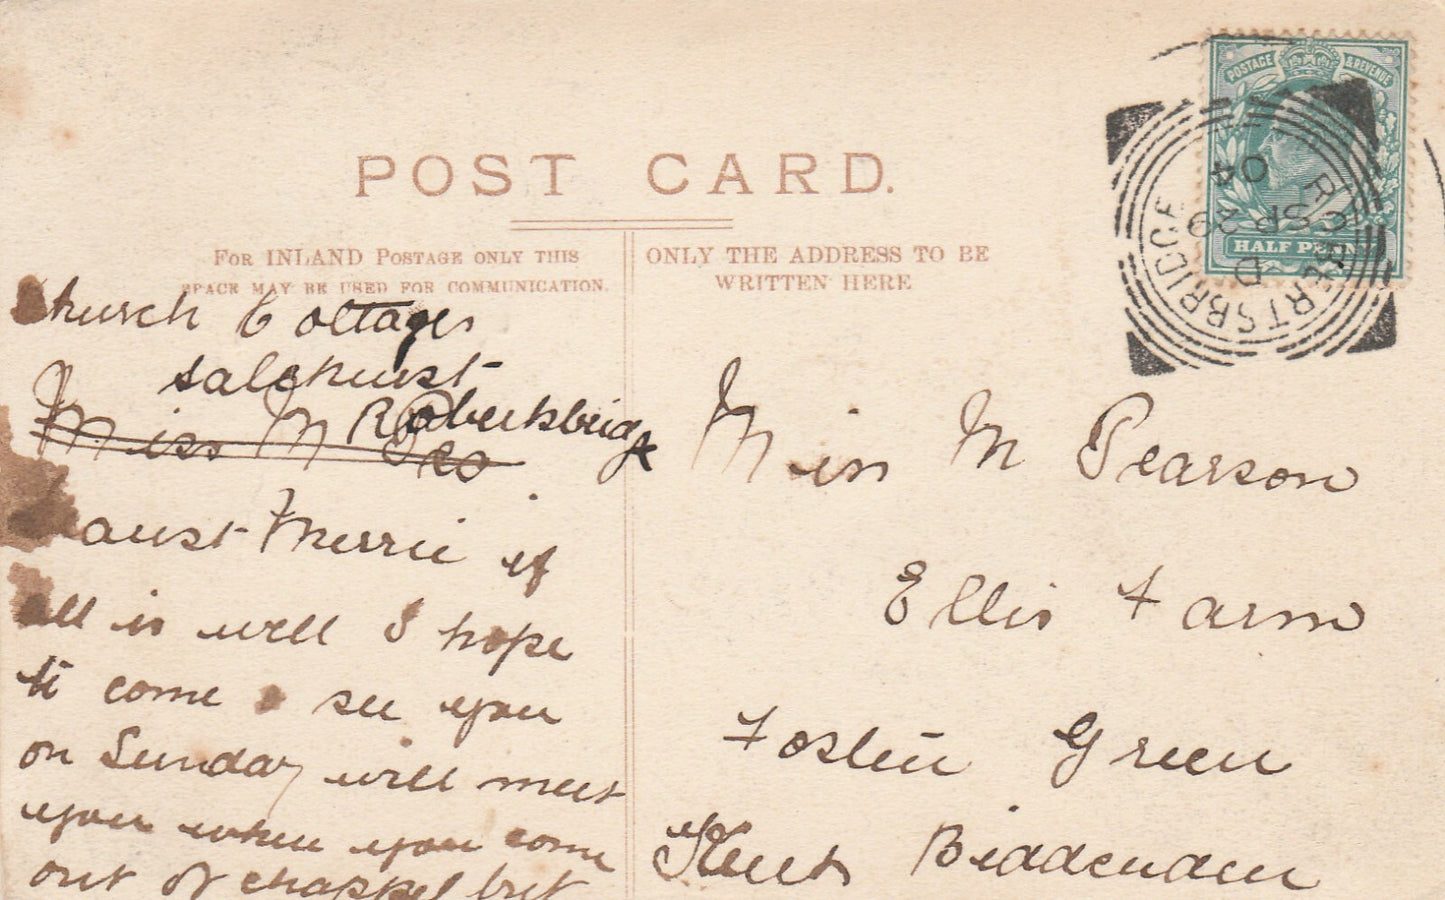 POST CARD.
For INLAND Postage only this
space may be used for communication.
ONLY THE ADDRESS TO BE
WRITTEN HERE
POSTAGE & REVENUE
HALF PENNY
ROBERTSBRIDGE
D
SP 29
04
Church Cottages
salehurst
Robertsbridge
Miss M
Merrie if
all is well I hope
to come see you
on Sunday will meet
you when you come
out of chappel but
Miss M Pearson
Ellis Farm
Green
Kent Biddenden